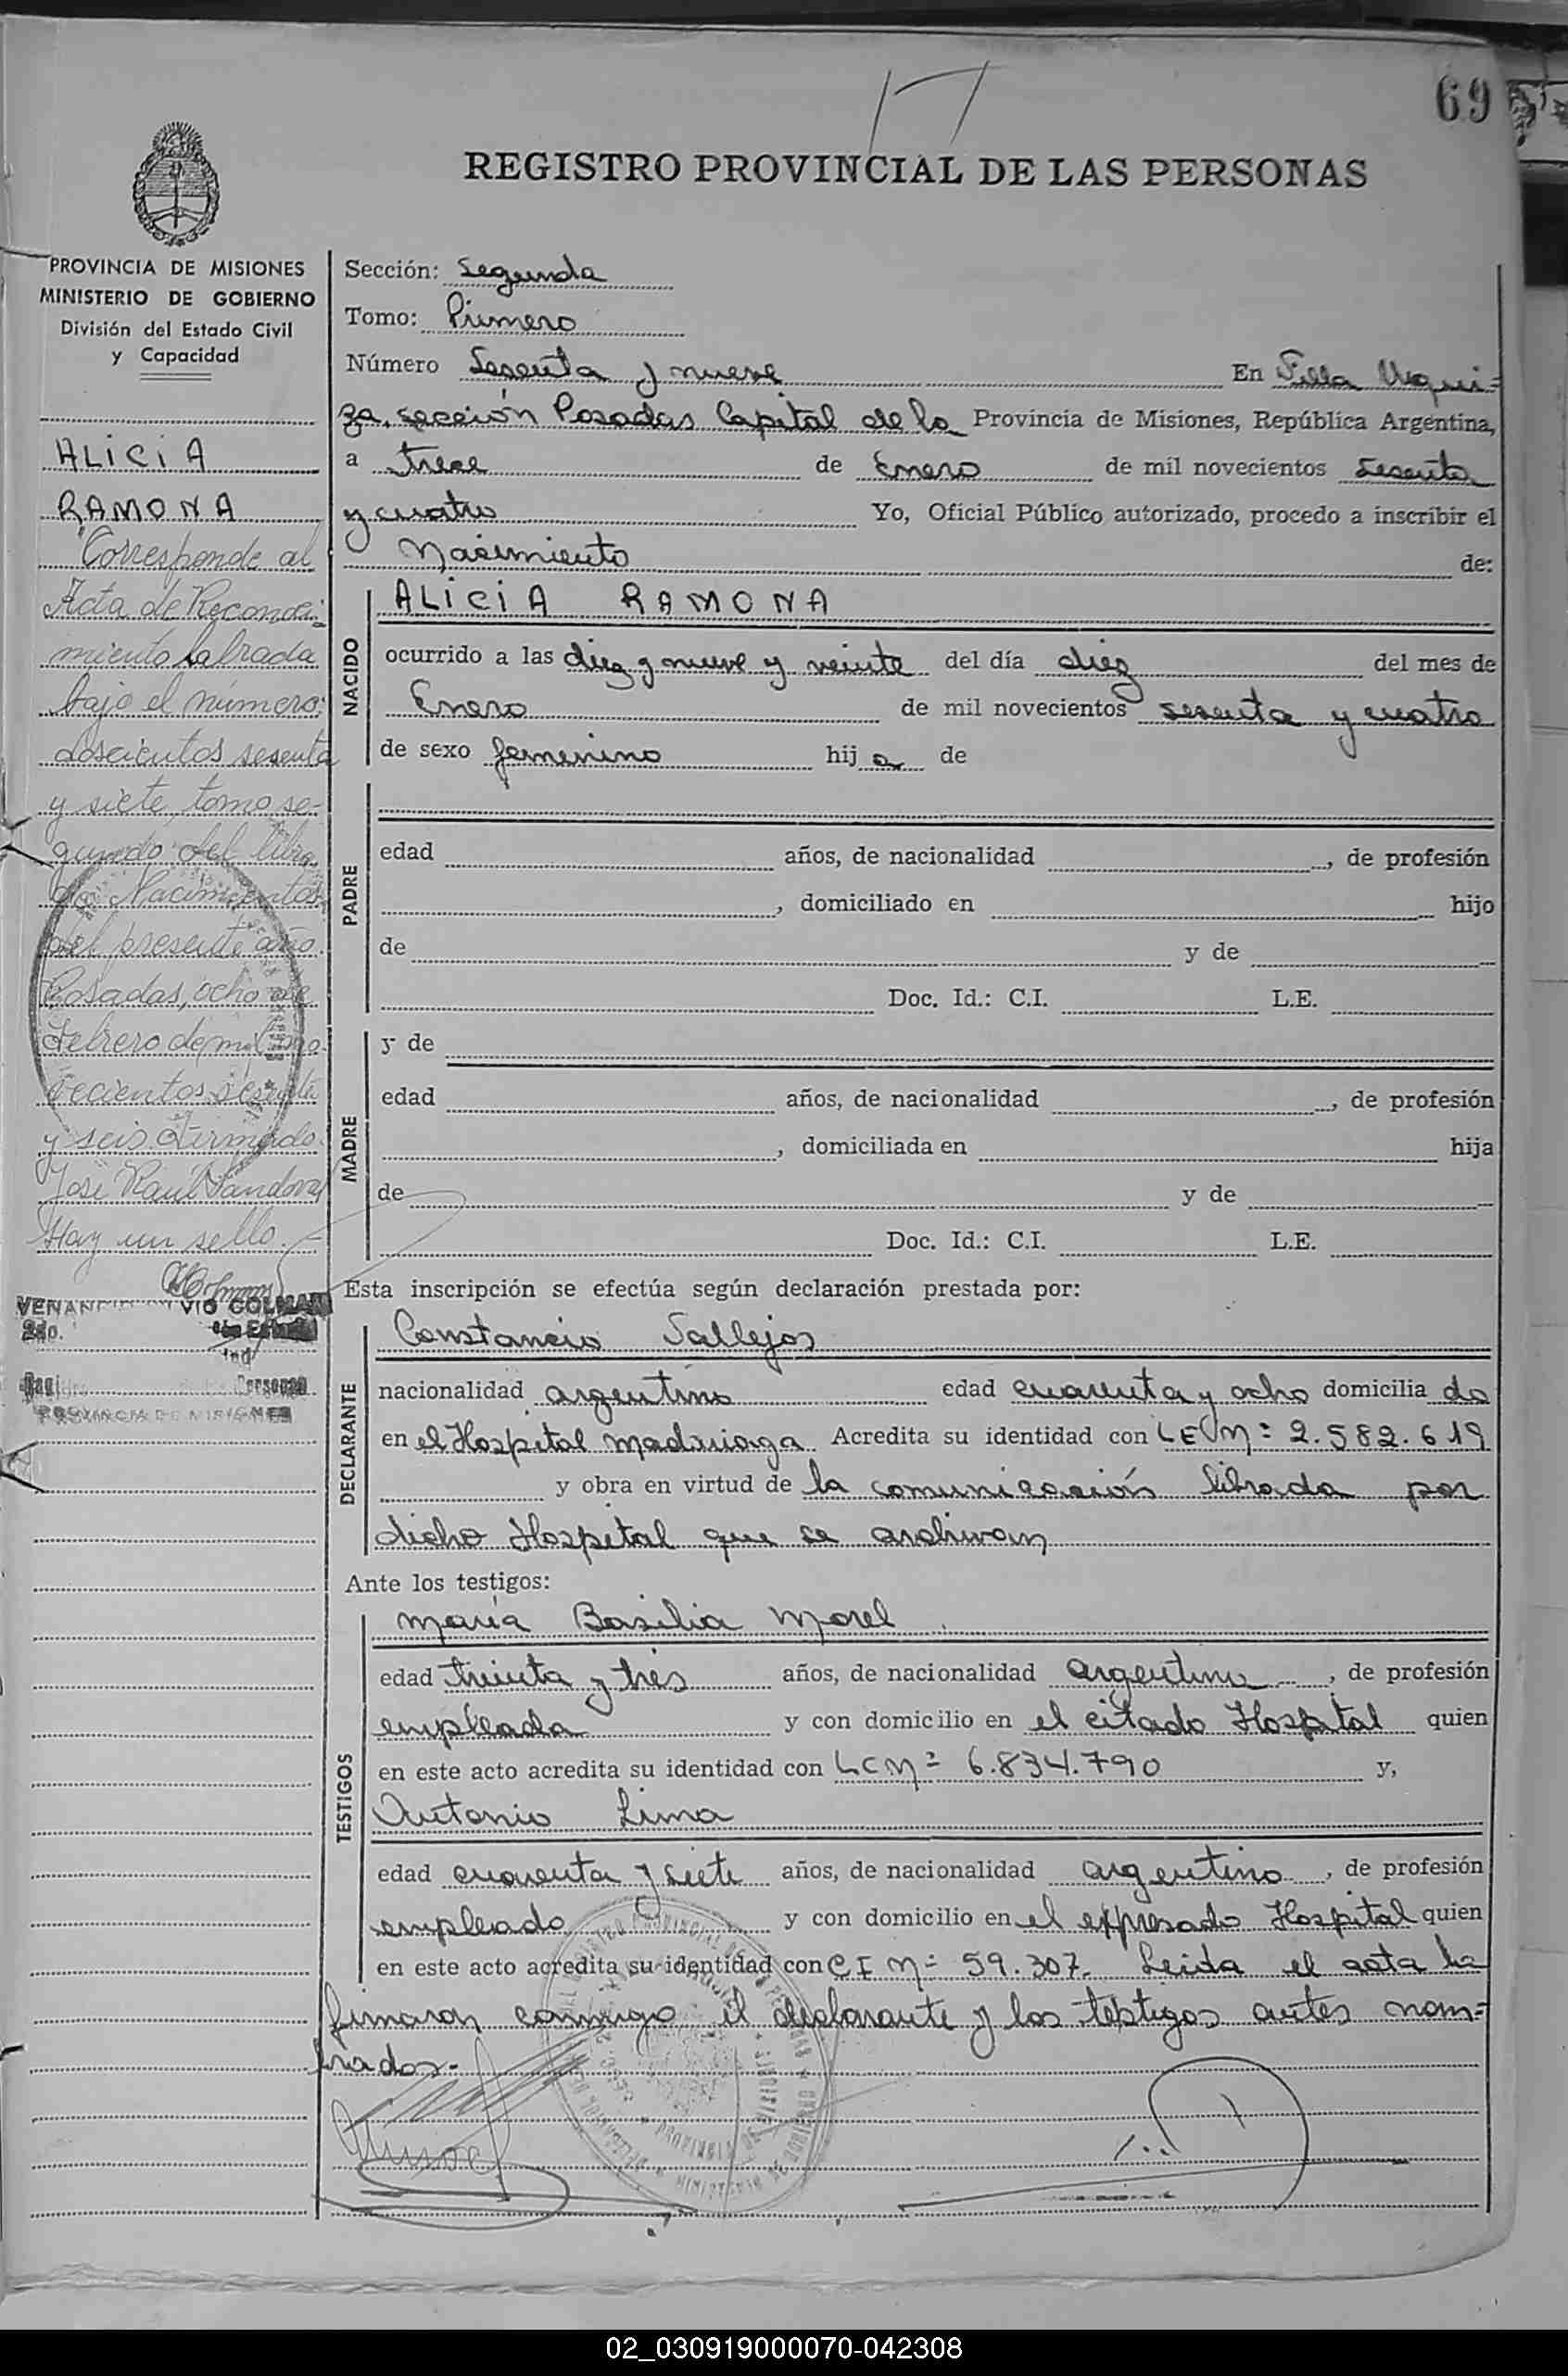 69
REGISTRO PROVINCIAL DE LAS PERSONAS
PROVINCIA DE MISIONES
MINISTERIO DE GOBIERNO
División del Estado Civil
y Capacidad
ALICIA
RAMONA
Corresponde al
Acta de Reconoci-
miento labrada
bajo el número:
doscientos sesenta
y siete, tomo se-
gundo del libro
de Nacimientos
del presente año.
Posadas, ocho de
Febrero de mil no-
vecientos sesenta
y seis. Firmado.
José Raúl Sandoval
Hay un sello.
COLMAN
PROVINCIA DE MISIONES
Sección: Segunda
Tomo: Primero
Número Sesenta y nueve En Villa Urqui=
za, sección Posadas Capital de la Provincia de Misiones, República Argentina,
a trece de Enero de mil novecientos sesenta
y cuatro Yo, Oficial Público autorizado, procedo a inscribir el
Nacimiento de:
NACIDO
ALICIA RAMONA
ocurrido a las diez y nueve y veinte del día diez del mes de
Enero de mil novecientos sesenta y cuatro
de sexo femenino hij a de
PADRE
edad años, de nacionalidad , de profesión
, domiciliado en hijo
de y de
Doc. Id.: C.I. L.E.
MADRE
y de
edad años, de nacionalidad , de profesión
, domiciliada en hija
de y de
Doc. Id.: C.I. L.E.
Esta inscripción se efectúa según declaración prestada por:
DECLARANTE
Constancio Vallejos
nacionalidad argentino edad cuarenta y ocho domicilia do
en el Hospital Madariaga Acredita su identidad con LE Nº 2.582.619
y obra en virtud de la comunicación librada por
dicho Hospital que se archivan
Ante los testigos:
TESTIGOS
María Basilia Morel
edad treinta y tres años, de nacionalidad argentina , de profesión
empleada y con domicilio en el citado Hospital quien
en este acto acredita su identidad con LC Nº 6.834.790 y,
Antonio Lima
edad cuarenta y siete años, de nacionalidad argentino , de profesión
empleado y con domicilio en el expresado Hospital quien
en este acto acredita su identidad con CI Nº 59.307. Leida el acta la
firmaron conmigo el declarante y los testigos antes nom=
brados.-
02_030919000070-042308